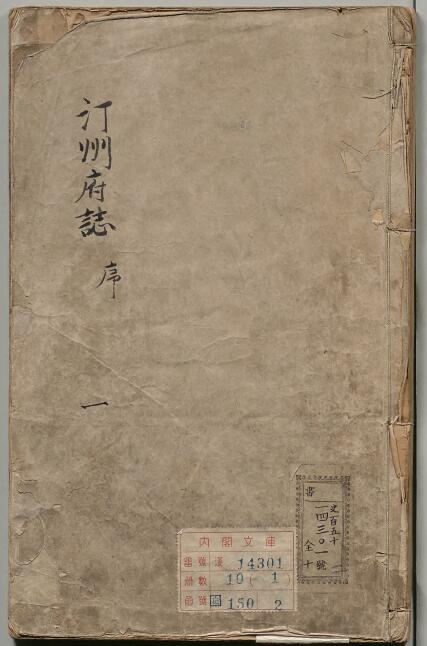 汀州府誌
序
一
書
史百五十
一四三〇一號
全十
內閣文庫
番號 漢 14301
冊數 10(1)
函號 150 2